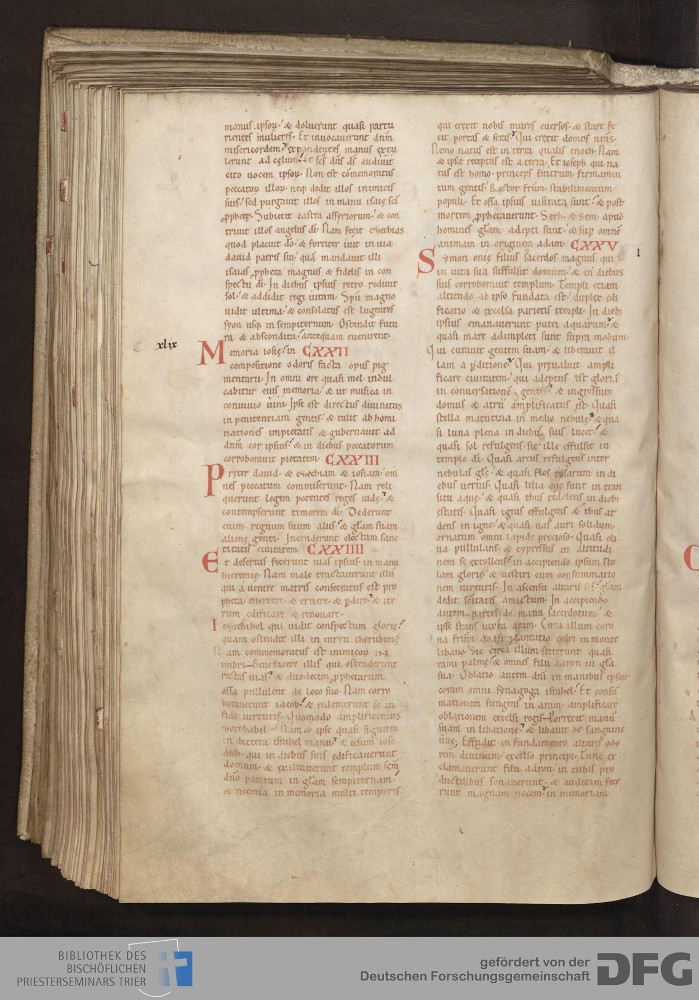 manus ipsoꝝ. & doluerunt quasi partu
rientes mulieres. Et inuocauerunt dn̄m
misericordem. expandentes manus extu
lerunt ad cęlum. Et sc̄s dn̄s ds̄ audiuit
cito uocem ipsoꝝ. Non est cōmemoratus
peccatoꝝ illoꝝ. neq; dedit illos inimicis
suis. sed purgauit illos in manu isaię sc̄i
ꝓphetę. Subiecit castra assyriorum. & con
triuit illos angelus dī. Nam fecit ezechias
quod placuit dō. & fortiter iuit in uia
dauid patris sui. quā mandauit illi
isaias ꝓpheta magnus & fidelis in con
spectu dī. In diebus ipsius retro rediuit
sol. & addidit regi uitam. Spū magno
uidit ultima. & consolatus est lugentes
syon usq; in sempiternum. Ostendit futu
ra & abscondita. antequam euenirent.
xlix
Memoria iosię. in CXXII
compositione odoris facta opus pig
mentarii. In omni ore quasi mel indul
cabitur eius memoria. & ut musica in
conuiuio uini. Ipse est directus diuinitus
in penitentiam gentis. & tulit abhomi
nationes impietatis. & gubernauit ad
dn̄m cor ipsius. & in diebus peccatorum
corroborauit pietatem. CXXIII
Preter dauid. & ezechiam & iosiam. om
nes peccatum commiserunt. Nam reli
querunt legem potentes reges iudę. &
contempserunt timorem dī. Dederunt
enim regnum suum aliis. & gl̄am suam
alienę genti. Incenderunt electam sanc
titatis ciuitatem. CXXIIII
Et desertas fecerunt uias ipsius in manu
hieremię. Nam male tractauerunt illū
qui a uentre matris consecratus est pro
pheta. euertere & eruere & pdere. & ite
rum edificare & renouare.
Iezechihel qui uidit conspectum glorię.
quam ostendit illi in curru cherubim.
Nam commemoratus est inimicoꝝ in
imbri. Benefacere illis qui ostenderunt
rectas uias. & duodecim ꝓphetarum
ossa pullulent de loco suo. Nam corro
borauerunt iacob. & redemerunt se in
fide uirtutis. Quomodo amplificemus
zorobabel. Nam & ipse quasi signum
in dextera israhel manu. & iesum iose
dech. qui in diebus suis edificauerunt
domum. & exaltauerunt templum scm̄
dn̄o paratum in gl̄am sempiternam.
& neemia in memoria multi temporis
qui erexit nobis muros euersos. & stare fe
cit portas & seras. Qui erexit domos nr̄as.
Nemo natus est in terra qualis enoch. Nam
& ipse receptus est a terra. Et ioseph qui na
tus est homo. princeps fratrum. firmamen
tum gentis. Rector fr̄um. stabilimentum
populi. Et ossa ipsius uisitata sunt. & post
mortem ꝓphetauerunt. Seth. & sem. apud
homines gl̄am adepti sunt. & sup̄ omnē
animam in originem adam. CXXV
Symon onię filius sacerdos magnus qui
in uita sua suffulsit domum. & in diebus
suis corroborauit templum. Templi etiam
altitudo ab ipso fundata est. duplex edi
ficatio & excelsi parietes templi. In dieb;
ipsius emanauerunt putei aquarum. &
quasi mare adimpleti sunt supra modum.
Qui curauit gentem suam. & liberauit il
lam a pditione. Qui pręualuit ampli
ficare ciuitatem. qui adeptus est glorię
in conuersatione gentis. & ingressum
domus & atrii amplificatus est. Quasi
stella matutina in medio nebulę. & qua
si luna plena in diebus suis lucet. &
quasi sol refulgens. sic ille effulsit in
templo dī. Quasi arcus refulgens inter
nebulas glę. & quasi flos rosarum in di
ebus uernis. Quasi lilia que sunt in tran
situ aquę. & quasi thus redolens in dieb;
estatis. Quasi ignis effulgens. & thus ar
dens in igne. & quasi uas auri solidum.
ornatum omni lapide precioso. Quasi oli
ua pullulans. & cypressus in altitudi
nem se extollens. in accipiendo ipsum sto
lam glorię. & uestiri eum consummatio
nem uirtutis. In ascensu altaris sc̄i gl̄am
dedit sc̄itatis amictum. In accipiendo
autem partes de manu sacerdotum. &
ipse stans iuxta aram. Circa illum coro
na fr̄um. quasi plantatio cedri in monte
libano. Sic circa illum steterunt quasi
rami palmę. & omnes filii aaron in gl̄a
sua. Oblatio autem dn̄i in manibus ipso
rorum omni synagoga israhel. Et consu
mationem fungens in aram. amplificare
oblationem excelsi regis. Porrexit manū
suam in libatione. & libauit de sanguine
uuę. Effudit in fundamento altaris odo
rem diuinum excelso principi. Tunc ex
clamauerunt filii aaron. in tubis pro
ductilibus sonauerunt. & auditam fece
runt magnam uocem. in memoriam
BIBLIOTHEK DES
BISCHÖFLICHEN
PRIESTERSEMINARS TRIER
gefördert von der
Deutschen Forschungsgemeinschaft
DFG